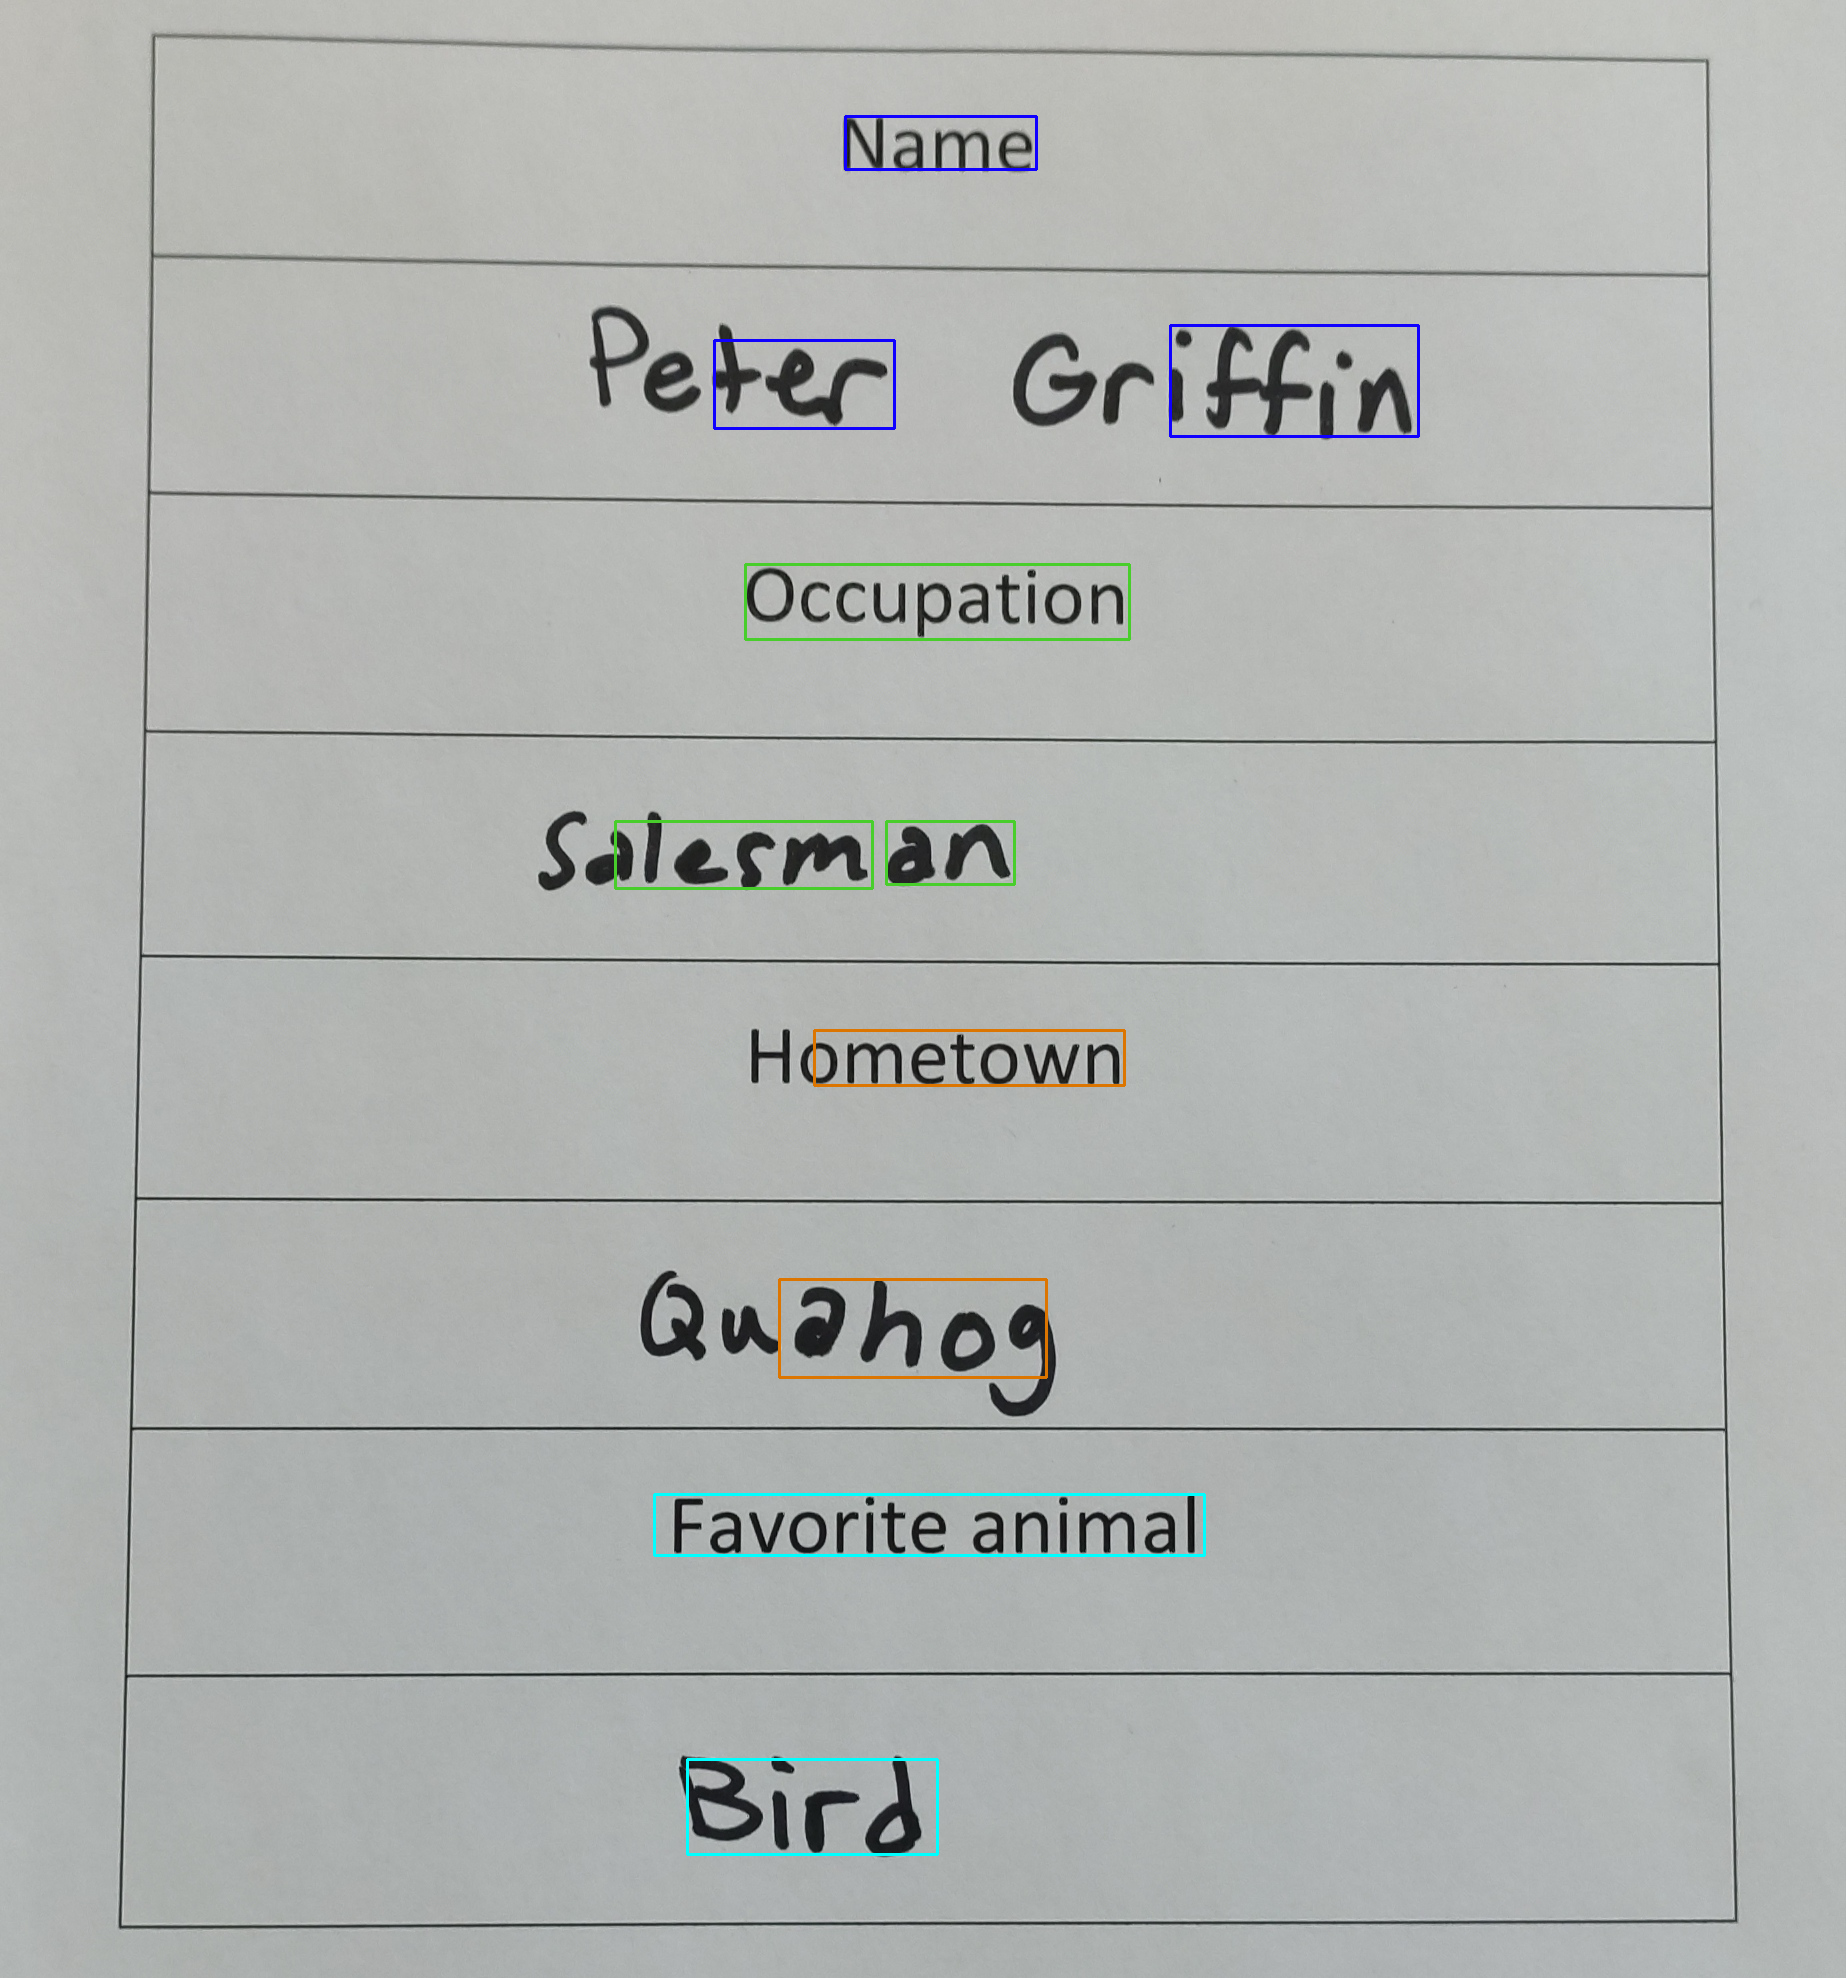 Name
Peter Griffin
Occupation
Salesman
Hometown
Quahog
Favorite animal
Bird